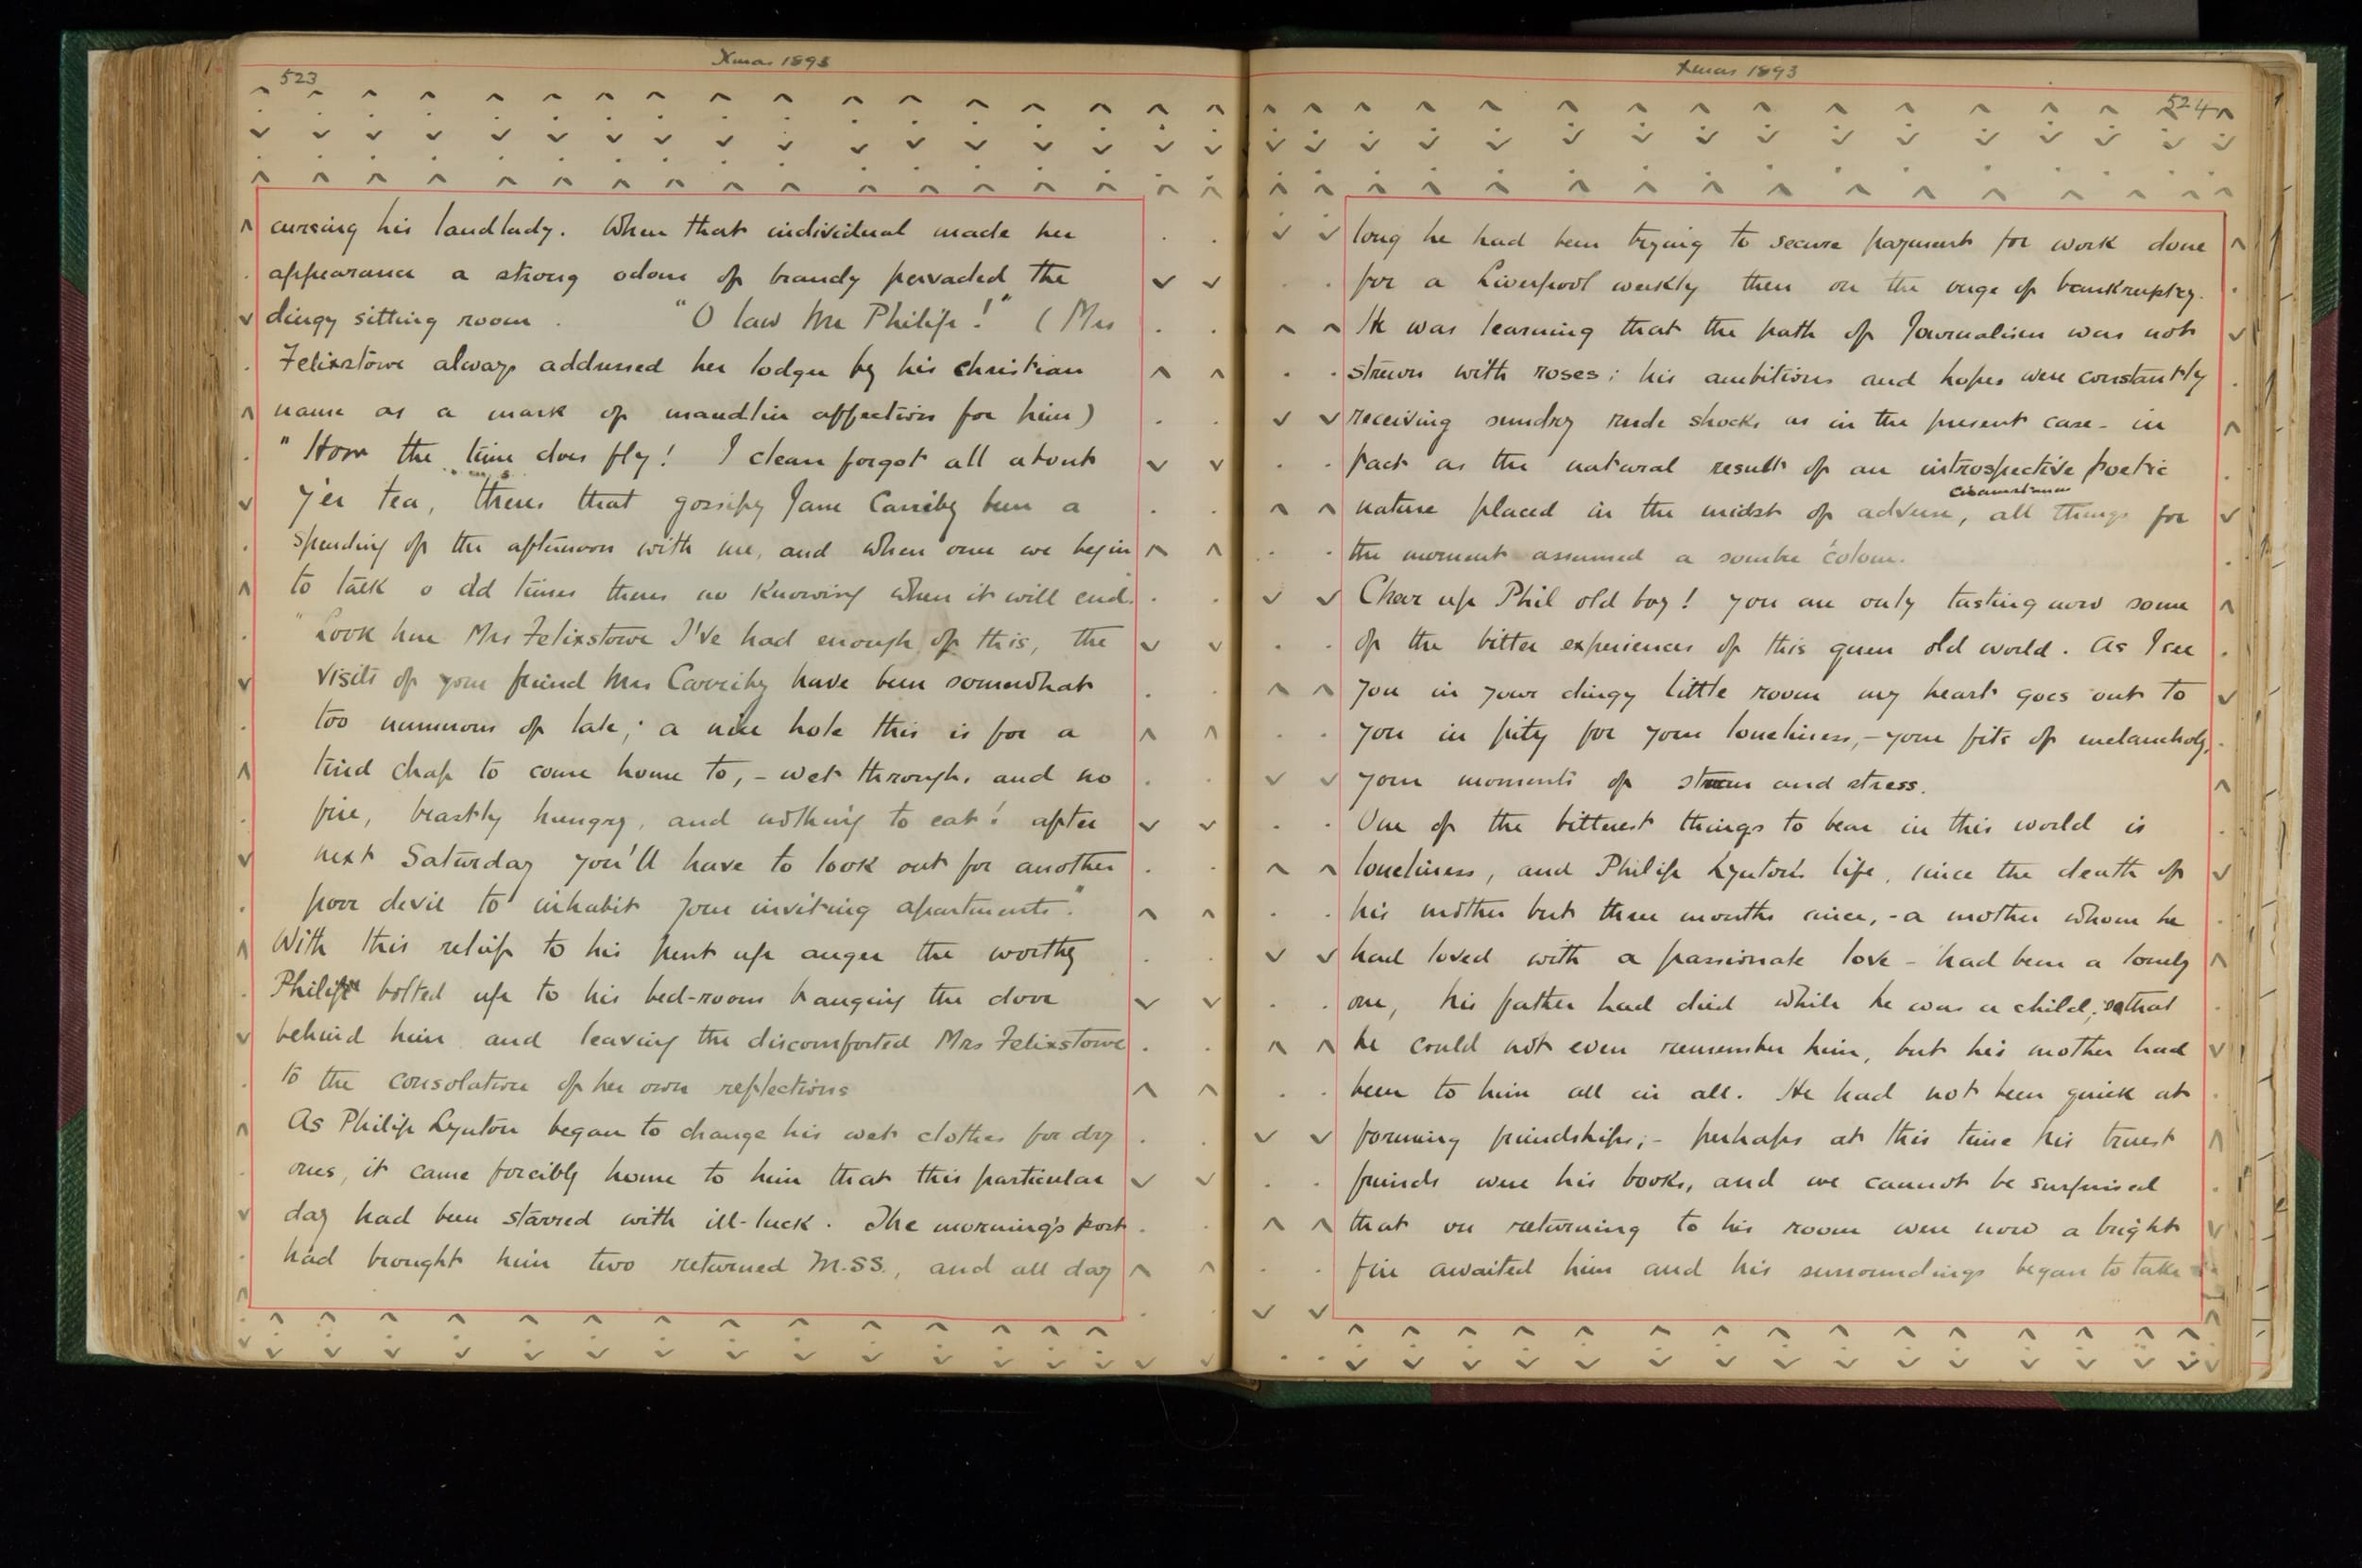 Xmas 1893
523
cursing his landlady. When that individual made her
appearance a strong odour of brandy pervaded the
dingy sitting room. "O law Mr Philip!" (Mrs
Felixstowe always addressed her lodger by his christian
name as a mark of maudlin affection for him)
"How the time does fly! I clean forgot all about
y'er tea, theres that gossipy Jane Carriby been a
spending of the afternoon with me, and when once we begin
to talk o old times theres no knowing when it will end.
"Look here Mrs Felixstowe I've had enough of this, the
visits of your friend Mrs Carriby have been somewhat
too numerous of late; a nice hole this is for a
tired chap to come home to, - wet through, and no
fire, beastly hungry, and nothing to eat! after
next Saturday you'll have to look out for another
poor devil to inhabit your inviting apartments."
With this relief to his pent up anger the worthy
Philip bolted up to his bed-room banging the door
behind him and leaving the discomforted Mrs Felixstowe
to the consolation of her own reflections
As Philip Lynton began to change his wet clothes for dry
ones, it came forcibly home to him that this particular
day had been starred with ill-luck. The morning's post
had brought him two returned M.SS., and all day
Xmas 1893
524
long he had been trying to secure payment for work done
for a Liverpool weekly then on the verge of bankruptcy.
He was learning that the path of Journalism was not
strewn with roses; his ambitions and hopes were constantly
receiving sundry rude shocks as in the present case - in
fact as the natural result of an introspective poetic
circumstances
nature placed in the midst of adverse, all things for
the moment assumed a sombre colour.
Cheer up Phil old boy! you are only tasting now some
of the bitter experiences of this queer old world. As I see
you in your dingy little room my heart goes out to
you in pity for your loneliness, - your fits of melancholy,
your moments of storm and stress.
One of the bitterest things to bear in this world is
loneliness, and Philip Lynton's life, since the death of
his mother but three months since, - a mother whom he
had loved with a passionate love - had been a lonely
one, his father had died while he was a child; so that
he could not even remember him, but his mother had
been to him all in all. He had not been quick at
forming friendships; - perhaps at this time his truest
friends were his books, and we cannot be surprised
that on returning to his room were now a bright
fire awaited him and his surroundings began to take